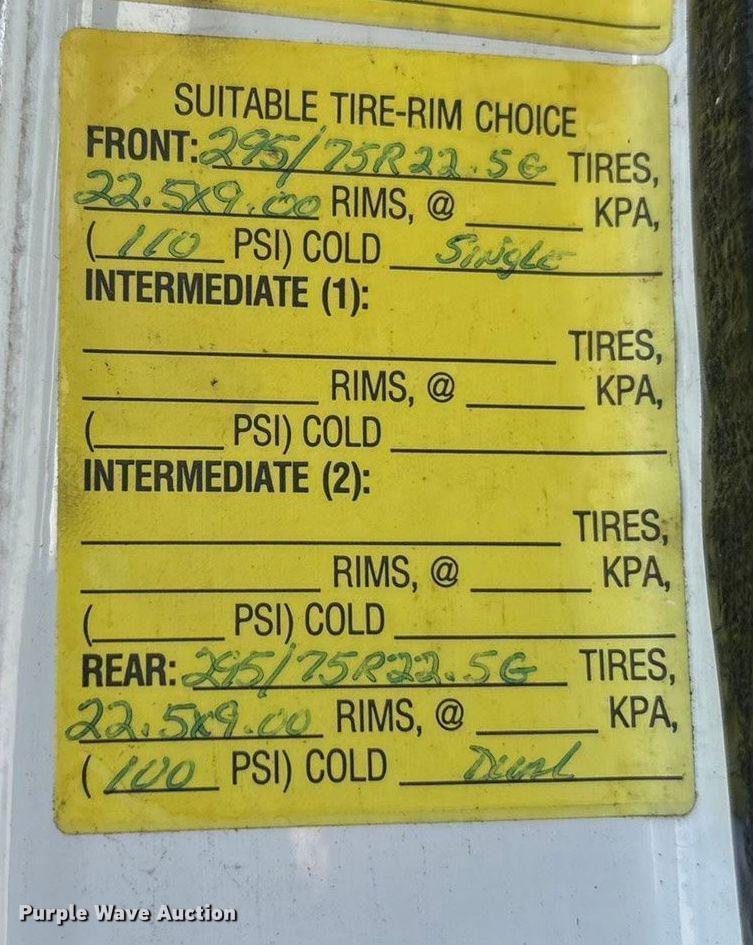 SUITABLE TIRE-RIM CHOICE
FRONT: 295/75R22.5G TIRES,
22.5x9.00 RIMS, @ ______ KPA,
( 110 PSI) COLD Single
INTERMEDIATE (1):
______ TIRES,
______ RIMS, @ ______ KPA,
(______ PSI) COLD ______
INTERMEDIATE (2):
______ TIRES,
______ RIMS, @ ______ KPA,
(______ PSI) COLD ______
REAR: 295/75R22.5G TIRES,
22.5x9.00 RIMS, @ ______ KPA,
( 100 PSI) COLD Dual
Purple Wave Auction